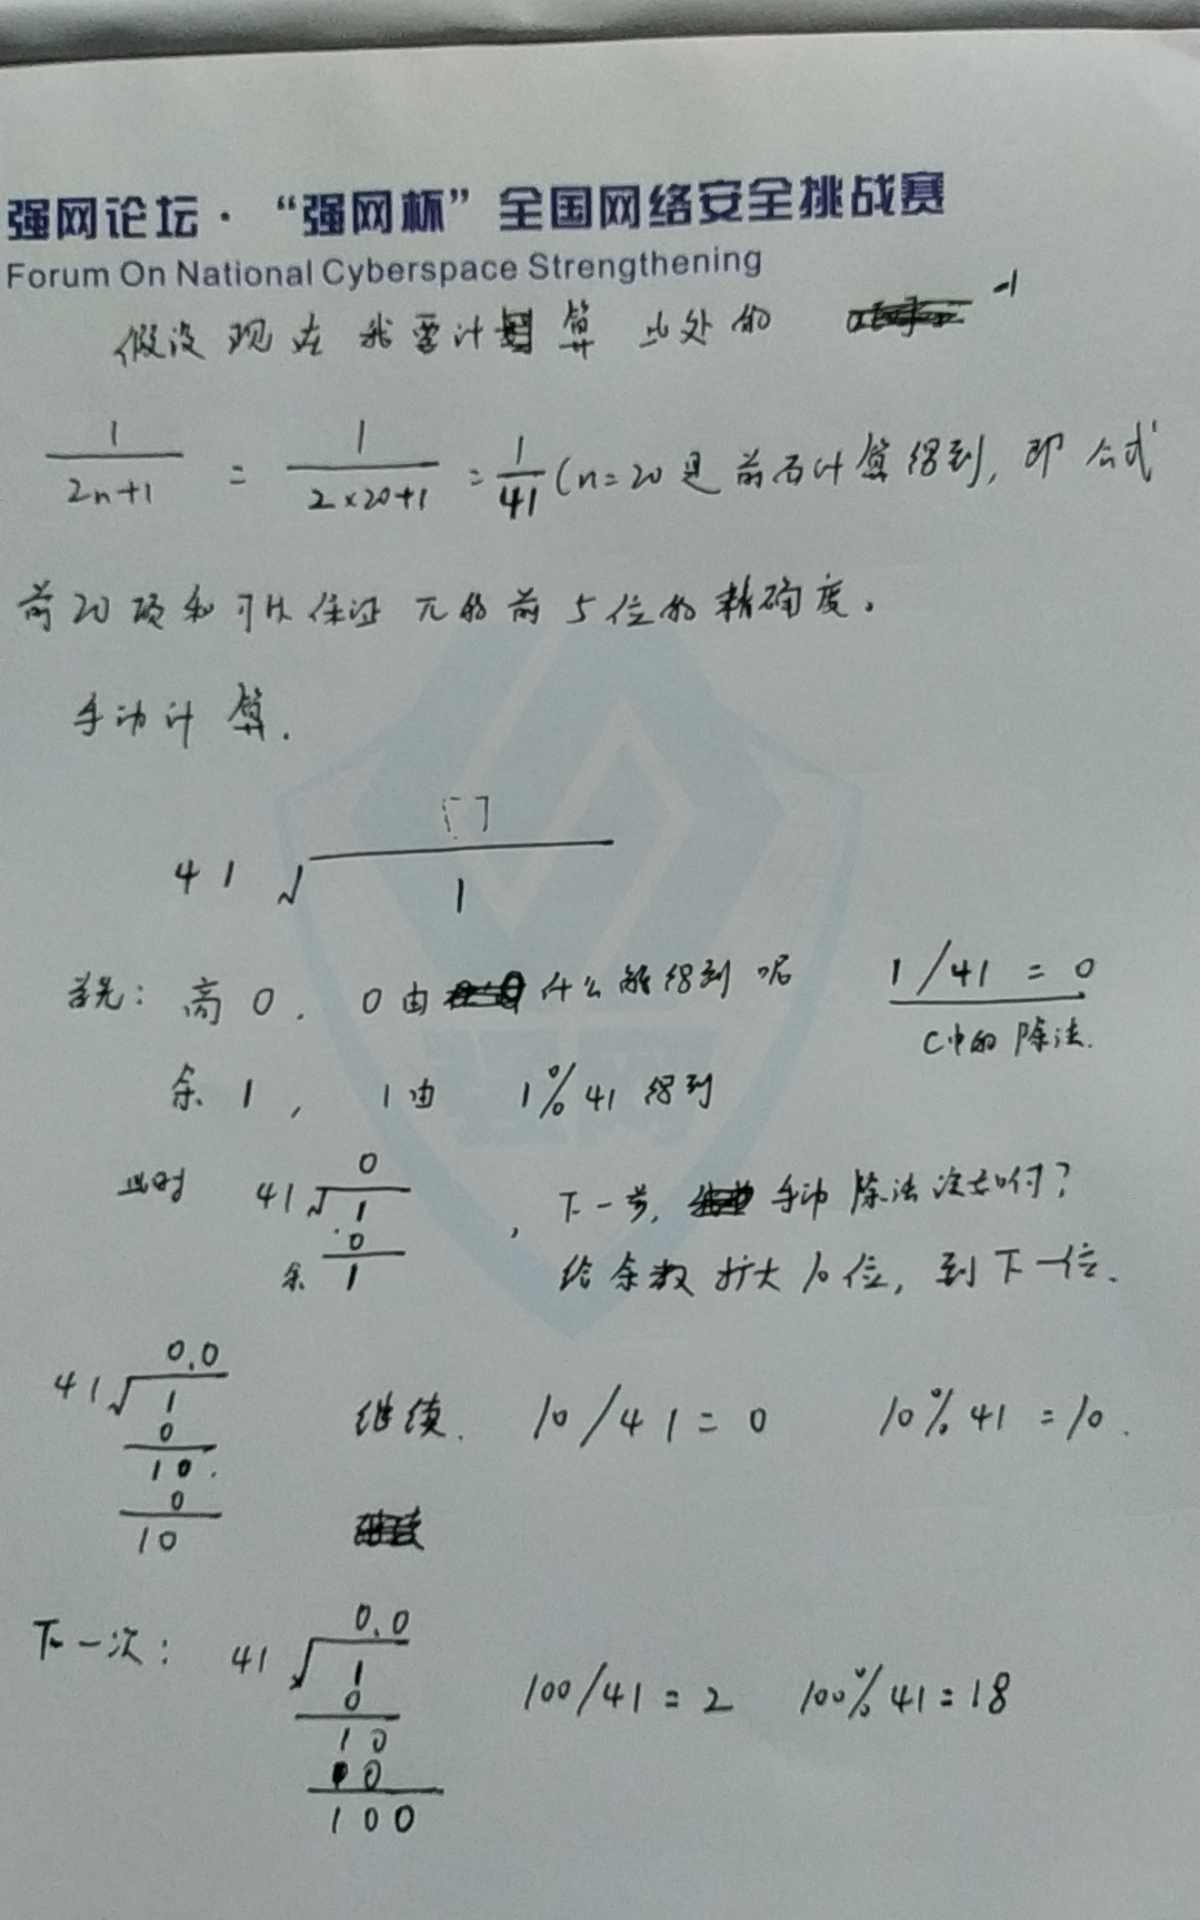 强网论坛·“强网杯”全国网络安全挑战赛
Forum On National Cyberspace Strengthening
假设现在我要计算此处的 -1
1/(2n+1) = 1/(2×20+1) = 1/41 (n=20是前面计算得到,即公式
前20项和可以保证π的前5位的精确度。
手动计算.
41 √ 1
首先: 商 0. 0由什么能得到呢 1/41 = 0
C中的除法.
余 1, 1由 1%41 得到
此时 41 √ 1 0 , 下一步, 手动除法该如何?
0
余 1 给余数扩大10位, 到下一位.
0.0
41 √ 1 继续. 10/41 = 0 10%41 = 10.
0
10.
0
10
下一次: 0.0
41 √ 1 100/41 = 2 100%41 = 18
0
10
0
100
强网